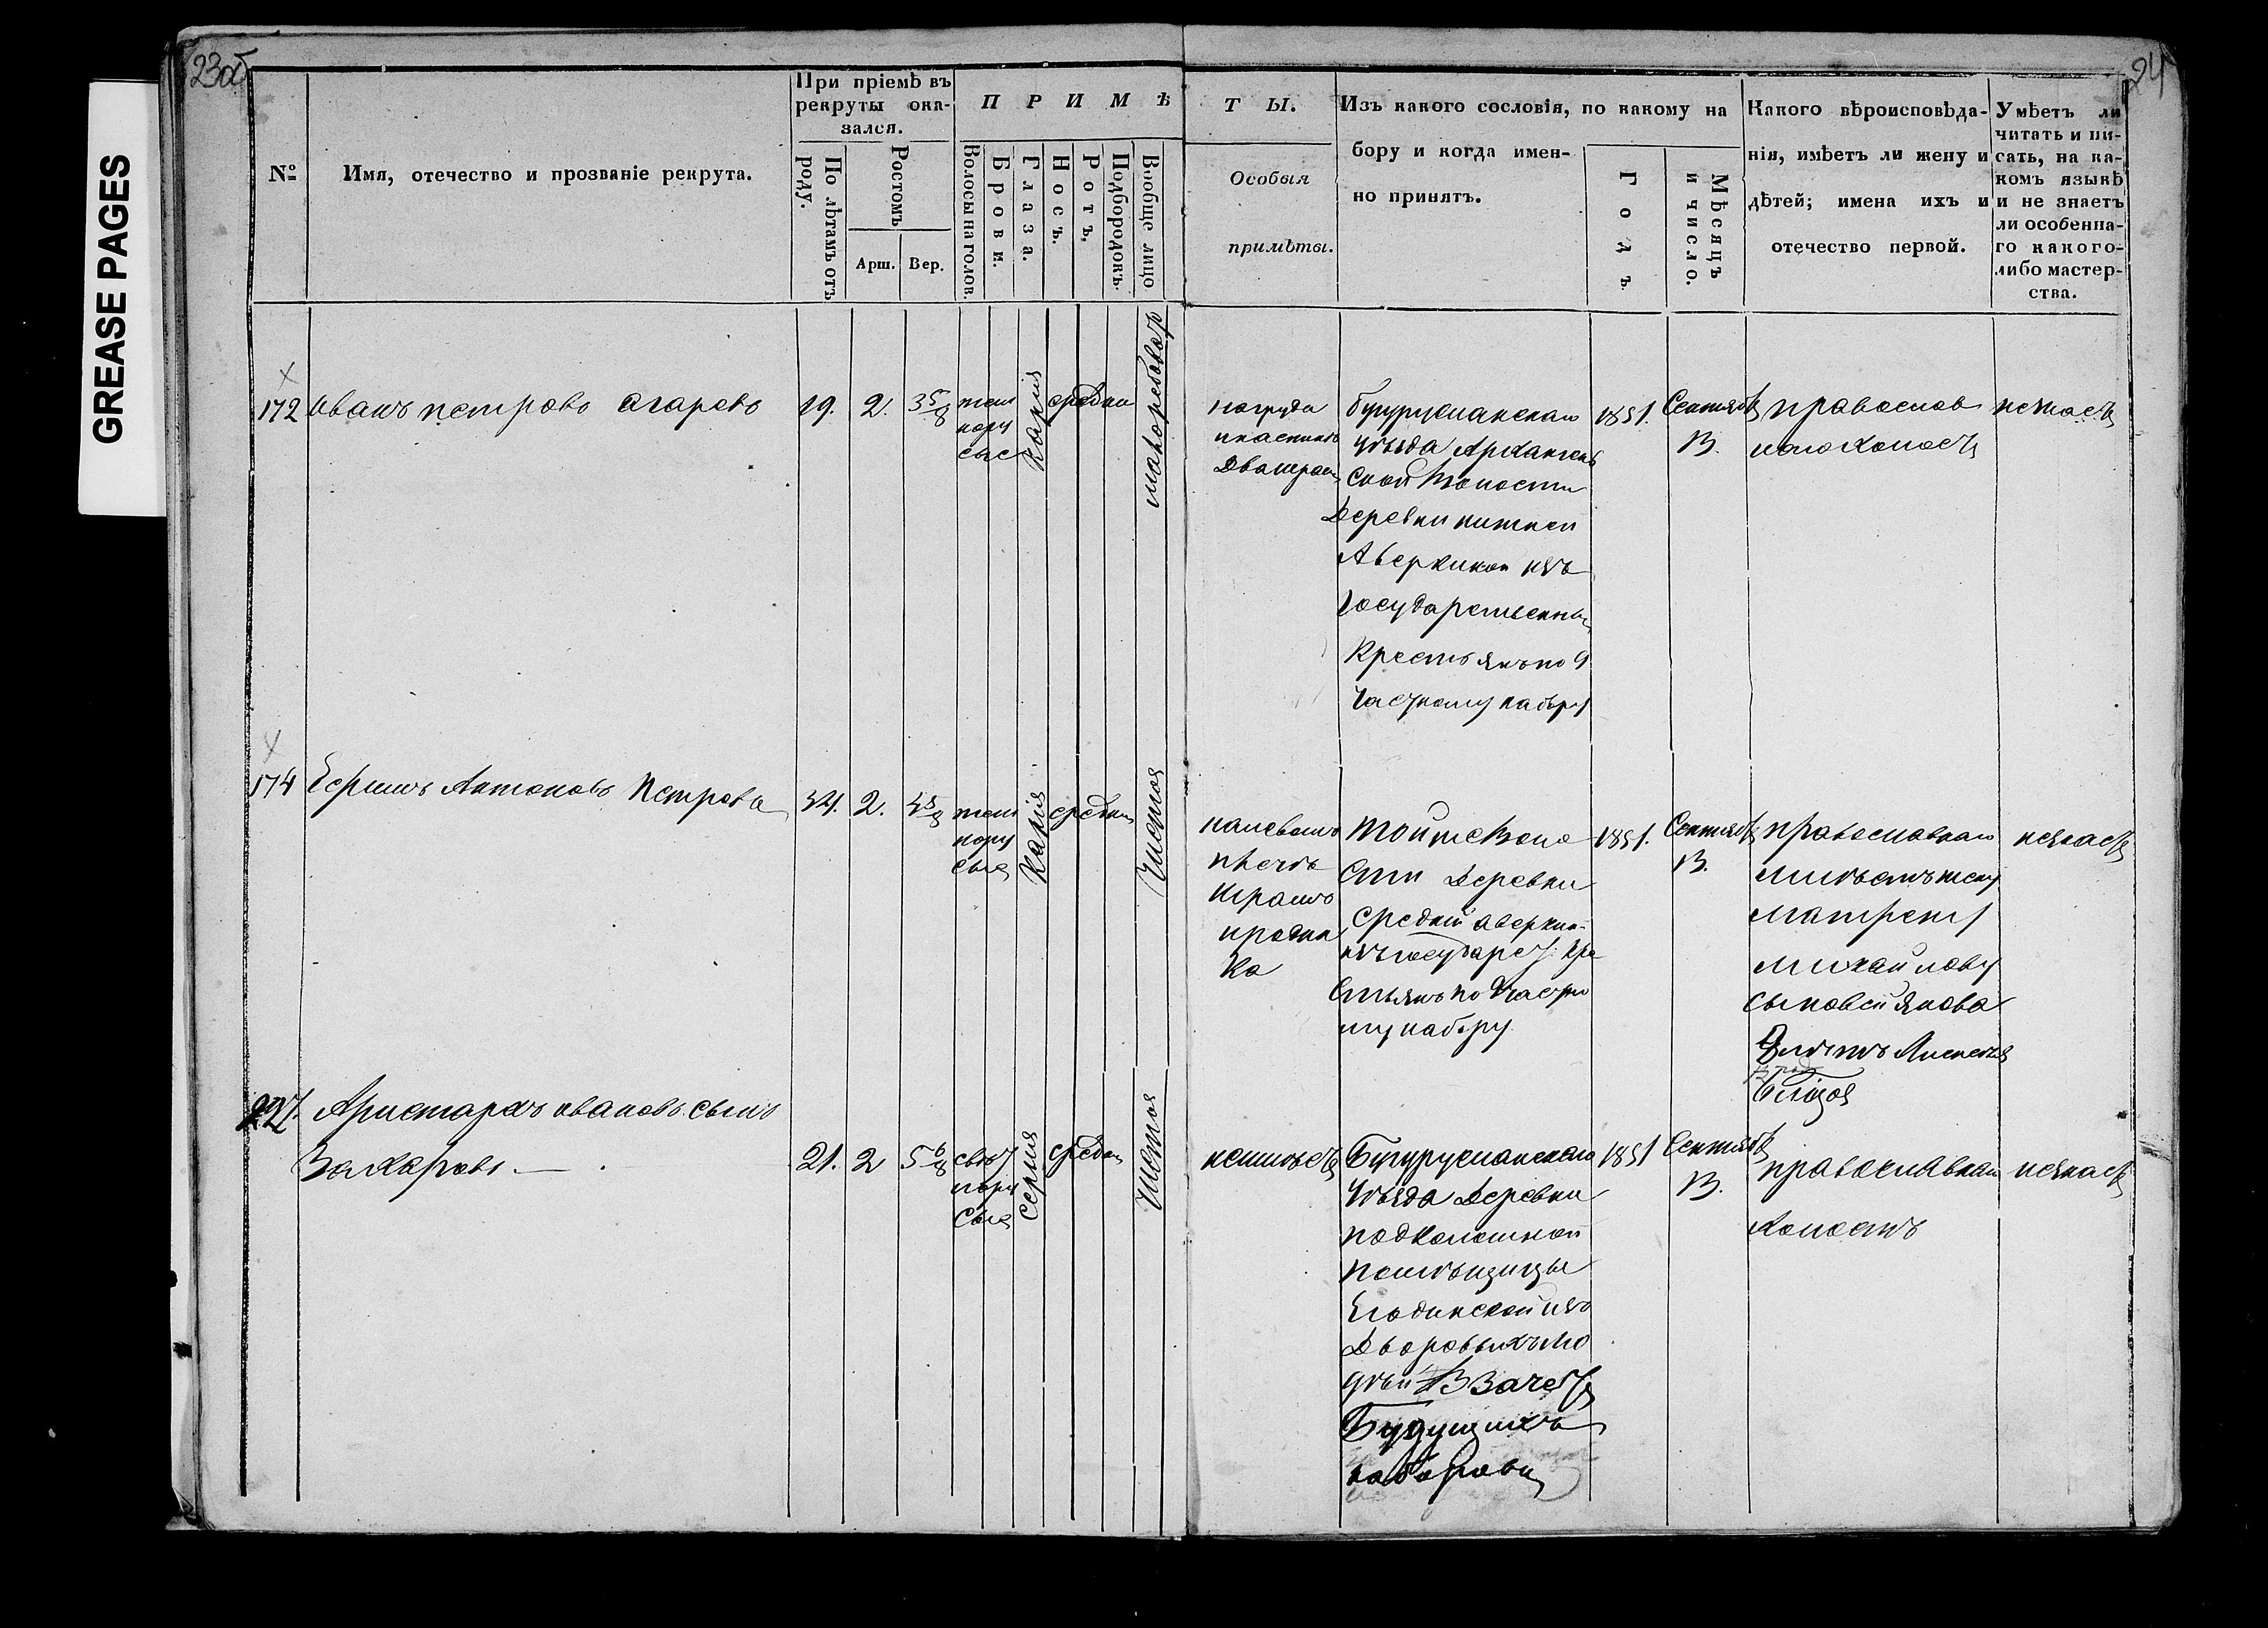 GREASE PAGES
23об
24
№
Имя, отечество и прозваніе рекрута.
При пріемѣ въ
рекруты ока-
зался.
По лѣтамъ отъ
роду.
Ростомъ
Арш.
Вер.
ПРИМѢ
Волосы на голов.
Брови.
Глаза.
Носъ.
Ротъ.
Подбородокъ.
Вообще лицо
ТЫ.
Особыя
примѣты.
Изъ какого сословія, по какому на
бору и когда имен-
но принятъ.
Годъ
Мѣсяцъ
и число.
Какого вѣроисповѣда-
нія, имѣетъ ли жену и
дѣтей; имена ихъ и
отечество первой.
Умѣетъ ли
читать и пи-
сать, на ка-
комъ языкѣ
и не знаетъ
ли особенна-
го какого-
либо мастер-
ства.
172
Иванъ Петровъ Агаревъ
19.
2.
3 5/8
темн
нору
сыс
Карія
средни
на груди
Бугурусланскаго
уѣзда Архангель
ской волости
Деревни нижней
Аверкиной изъ
Государственных
Крестьянъ по 9
Частному набору
1851.
Сентябр
13.
православ
наго холостъ
174
Ефимъ Антоновъ Петрова
34.
2.
темн
нору
сыя
Карія
средни
Чистоя
на левомъ
плечѣ
Шрамъ
и родин
ка
Той же воло
сти Деревни
Средней аверкин-
изъ государст. кре
стьянъ по 9 частно
му набору
1851.
Сентябр
13.
православнаго
имѣетъ жену
Матрену
Михайлову
сыновей Якова
227.
Аристархъ Ивановъ сынъ
Захаровъ.
21.
2
5 6/8
свѣт
лору
сыя
серыя
средни
Чистоя
неимѣетъ
Бугурусланскаго
Уѣзда Деревни
подколошной
помѣщицы
Ягодинской изъ
Дворовыхъ лю
дѣй В зачетъ
Будущихъ
наборовъ
1851
Сентябр
13.
православнаго
холостъ